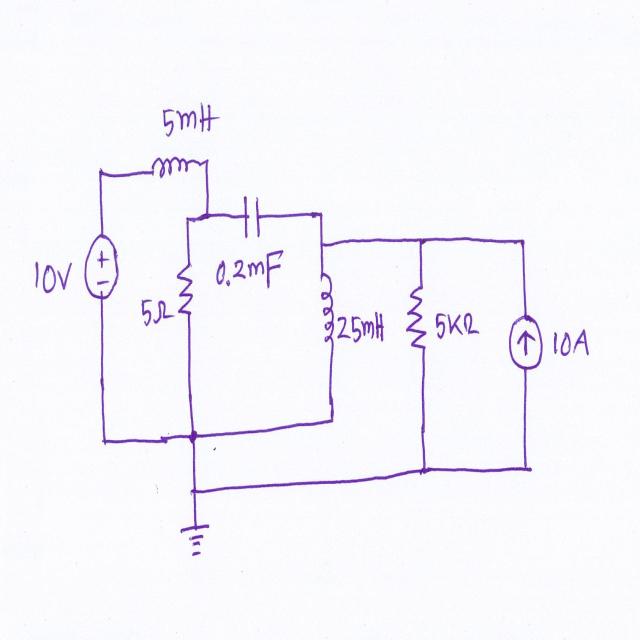 5mH
10V
+
-
0.2mF
5Ω
25mH
5KΩ
10A